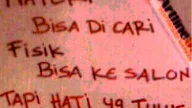 MATERI
BISA DI CARI
FISIK
BISA KE SALON
TAPI HATI YG